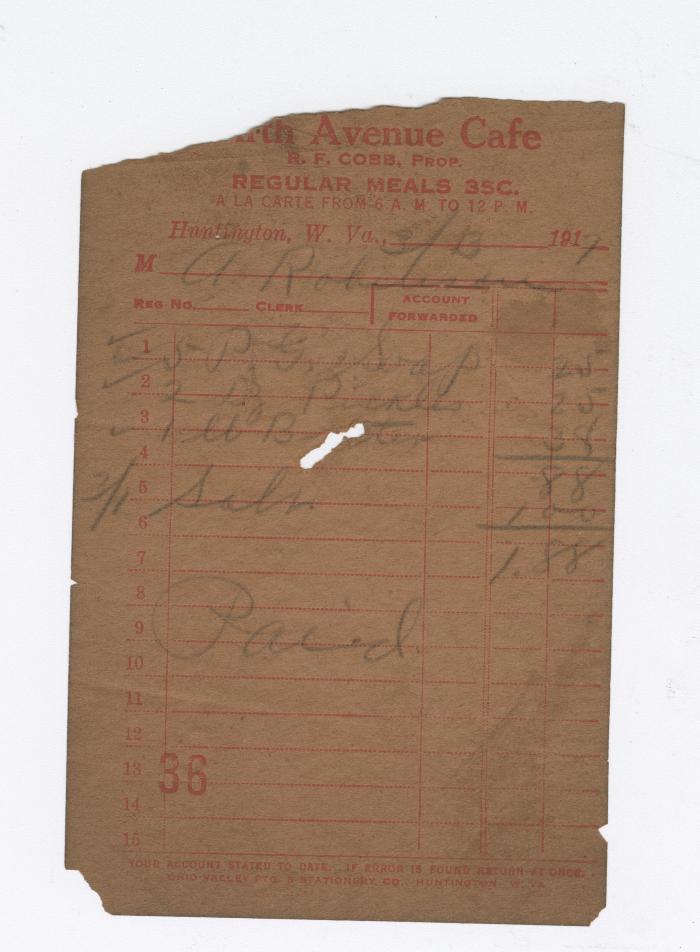 Avenue Cafe
R. F. COBB, PROP.
REGULAR MEALS 35C.
A LA CARTE FROM 6 A. M. TO 12 P. M.
Huntington, W. Va., 1917
M A. Robinson
REG NO. CLERK ACCOUNT FORWARDED
1 5 P. G. Soap 25
2 2 Pickles 25
3 1 38
4 88
5 1 00
6 1.88
7
8
9 Paid
10
11
12
13 36
14
15
YOUR ACCOUNT STATED TO DATE. IF ERROR IS FOUND RETURN AT ONCE.
OHIO VALLEY PTG. & STATIONERY CO., HUNTINGTON, W. VA